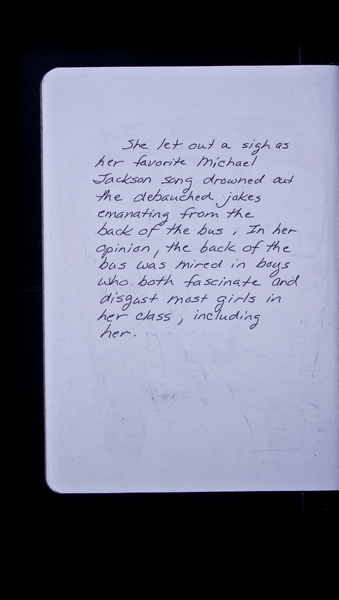 She let out a sigh as
her favorite Michael
Jackson song drowned out
the debauched jokes
emanating from the
back of the bus. In her
opinion, the back of the
bus was mired in boys
who both fascinate and
disgust most girls in
her class, including
her.